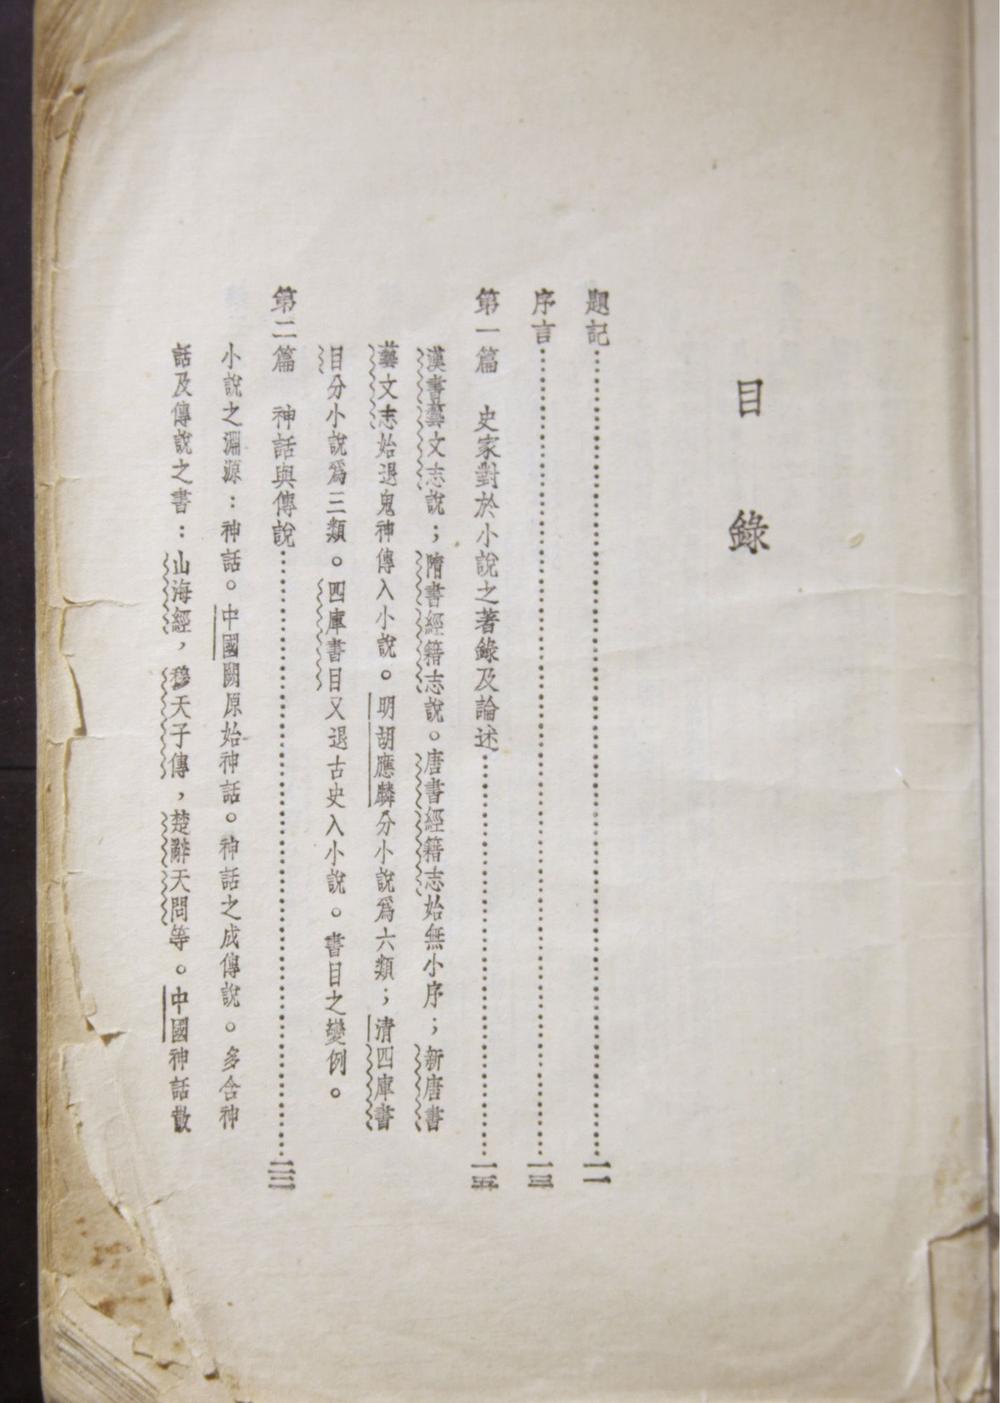 目錄
題記……………………一一
序言……………………一三
第一篇　史家對於小說之著錄及論述……………………一五
漢書藝文志說；隋書經籍志說。唐書經籍志始無小序；新唐書
藝文志始退鬼神傳入小說。明胡應麟分小說爲六類；清四庫書
目分小說爲三類。四庫書目又退古史入小說。書目之變例。
第二篇　神話與傳說……………………二三
小說之淵源：神話。中國闕原始神話。神話之成傳說。多含神
話及傳說之書：山海經，穆天子傳，楚辭天問等。中國神話散